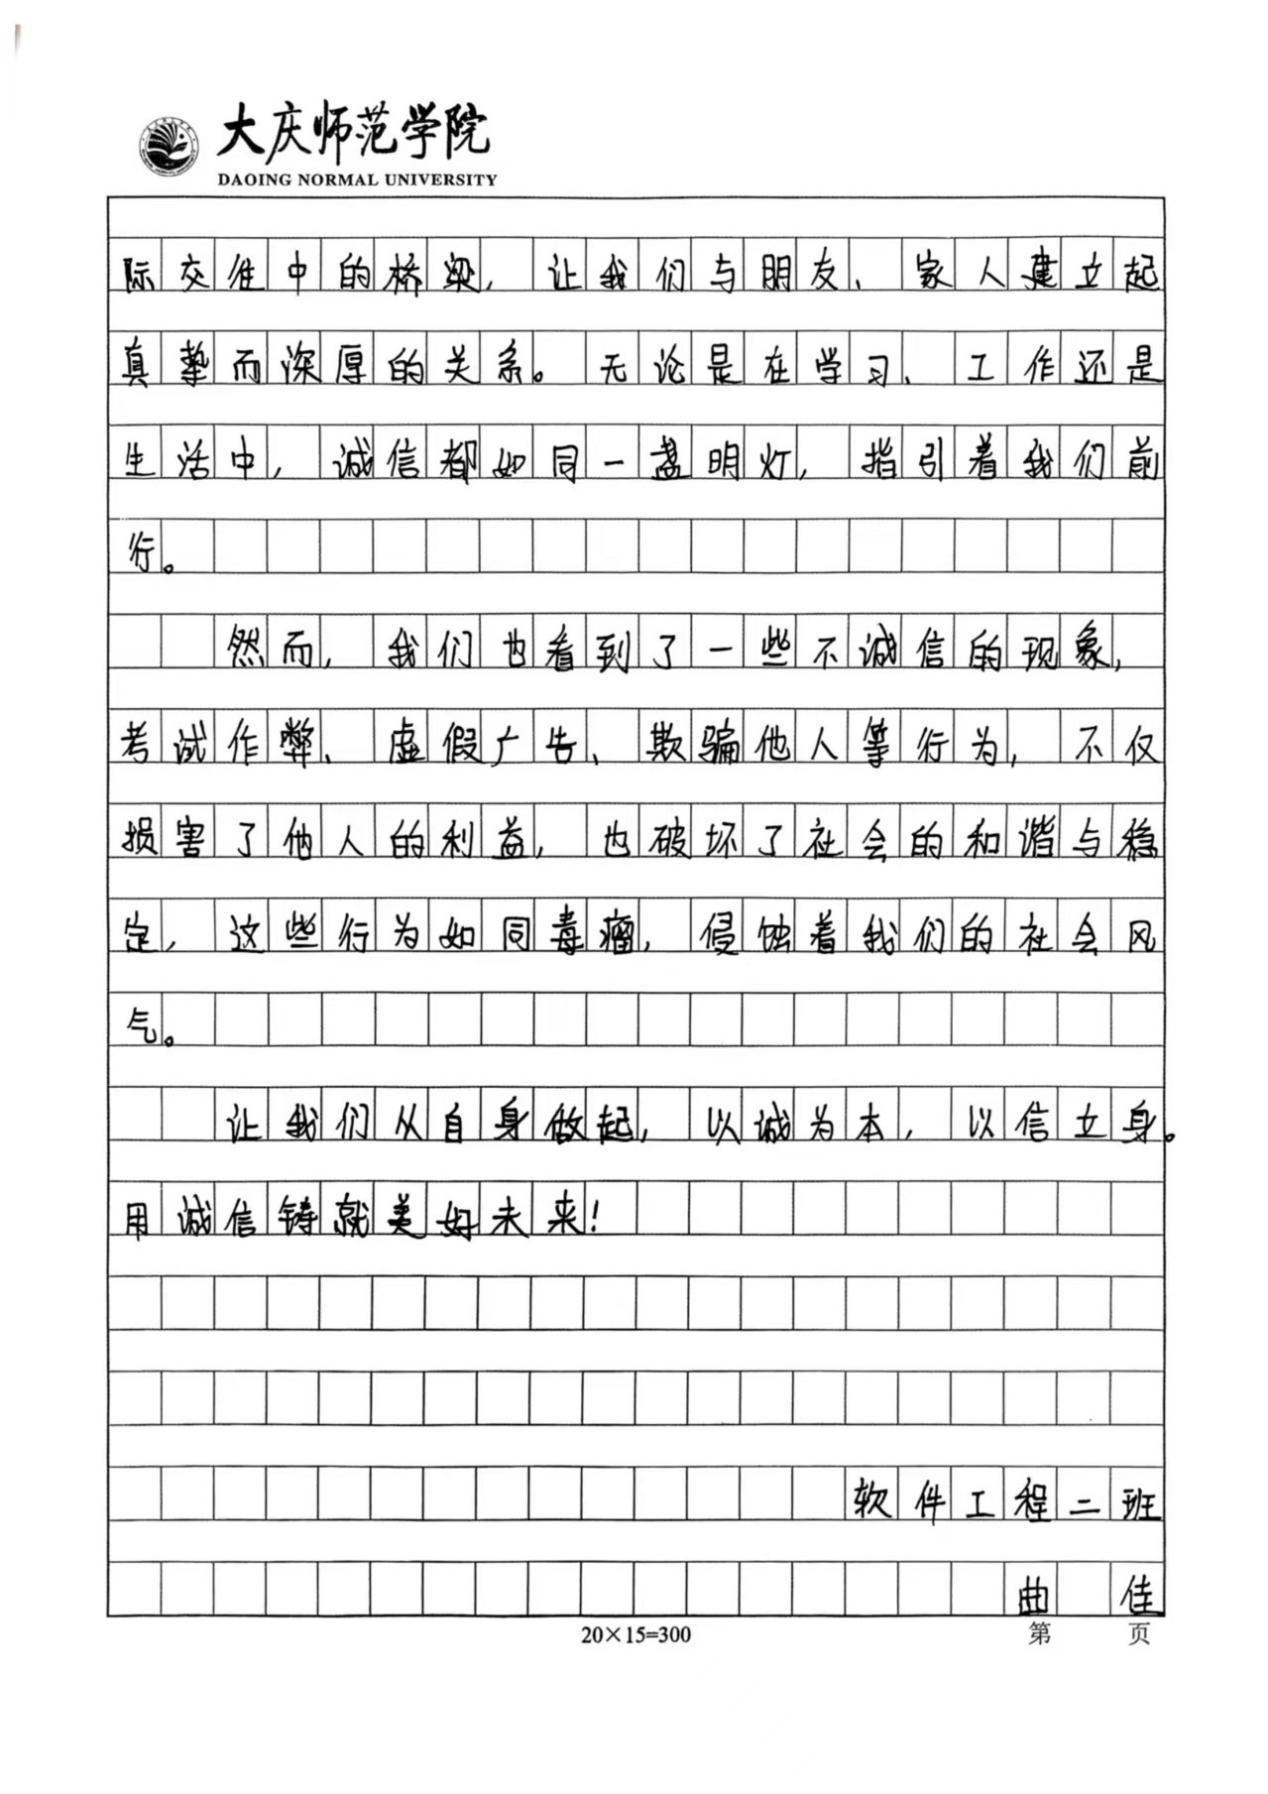 大庆师范学院
DAOING NORMAL UNIVERSITY
际交往中的桥梁，让我们与朋友、家人建立起
真挚而深厚的关系。无论是在学习、工作还是
生活中，诚信都如同一盏明灯，指引着我们前
行。
然而，我们也看到了一些不诚信的现象，
考试作弊、虚假广告、欺骗他人等行为，不仅
损害了他人的利益，也破坏了社会的和谐与稳
定，这些行为如同毒瘤，侵蚀着我们的社会风
气。
让我们从自身做起，以诚为本，以信立身。
用诚信铸就美好未来！
软件工程二班
曲佳
20×15=300
第 页